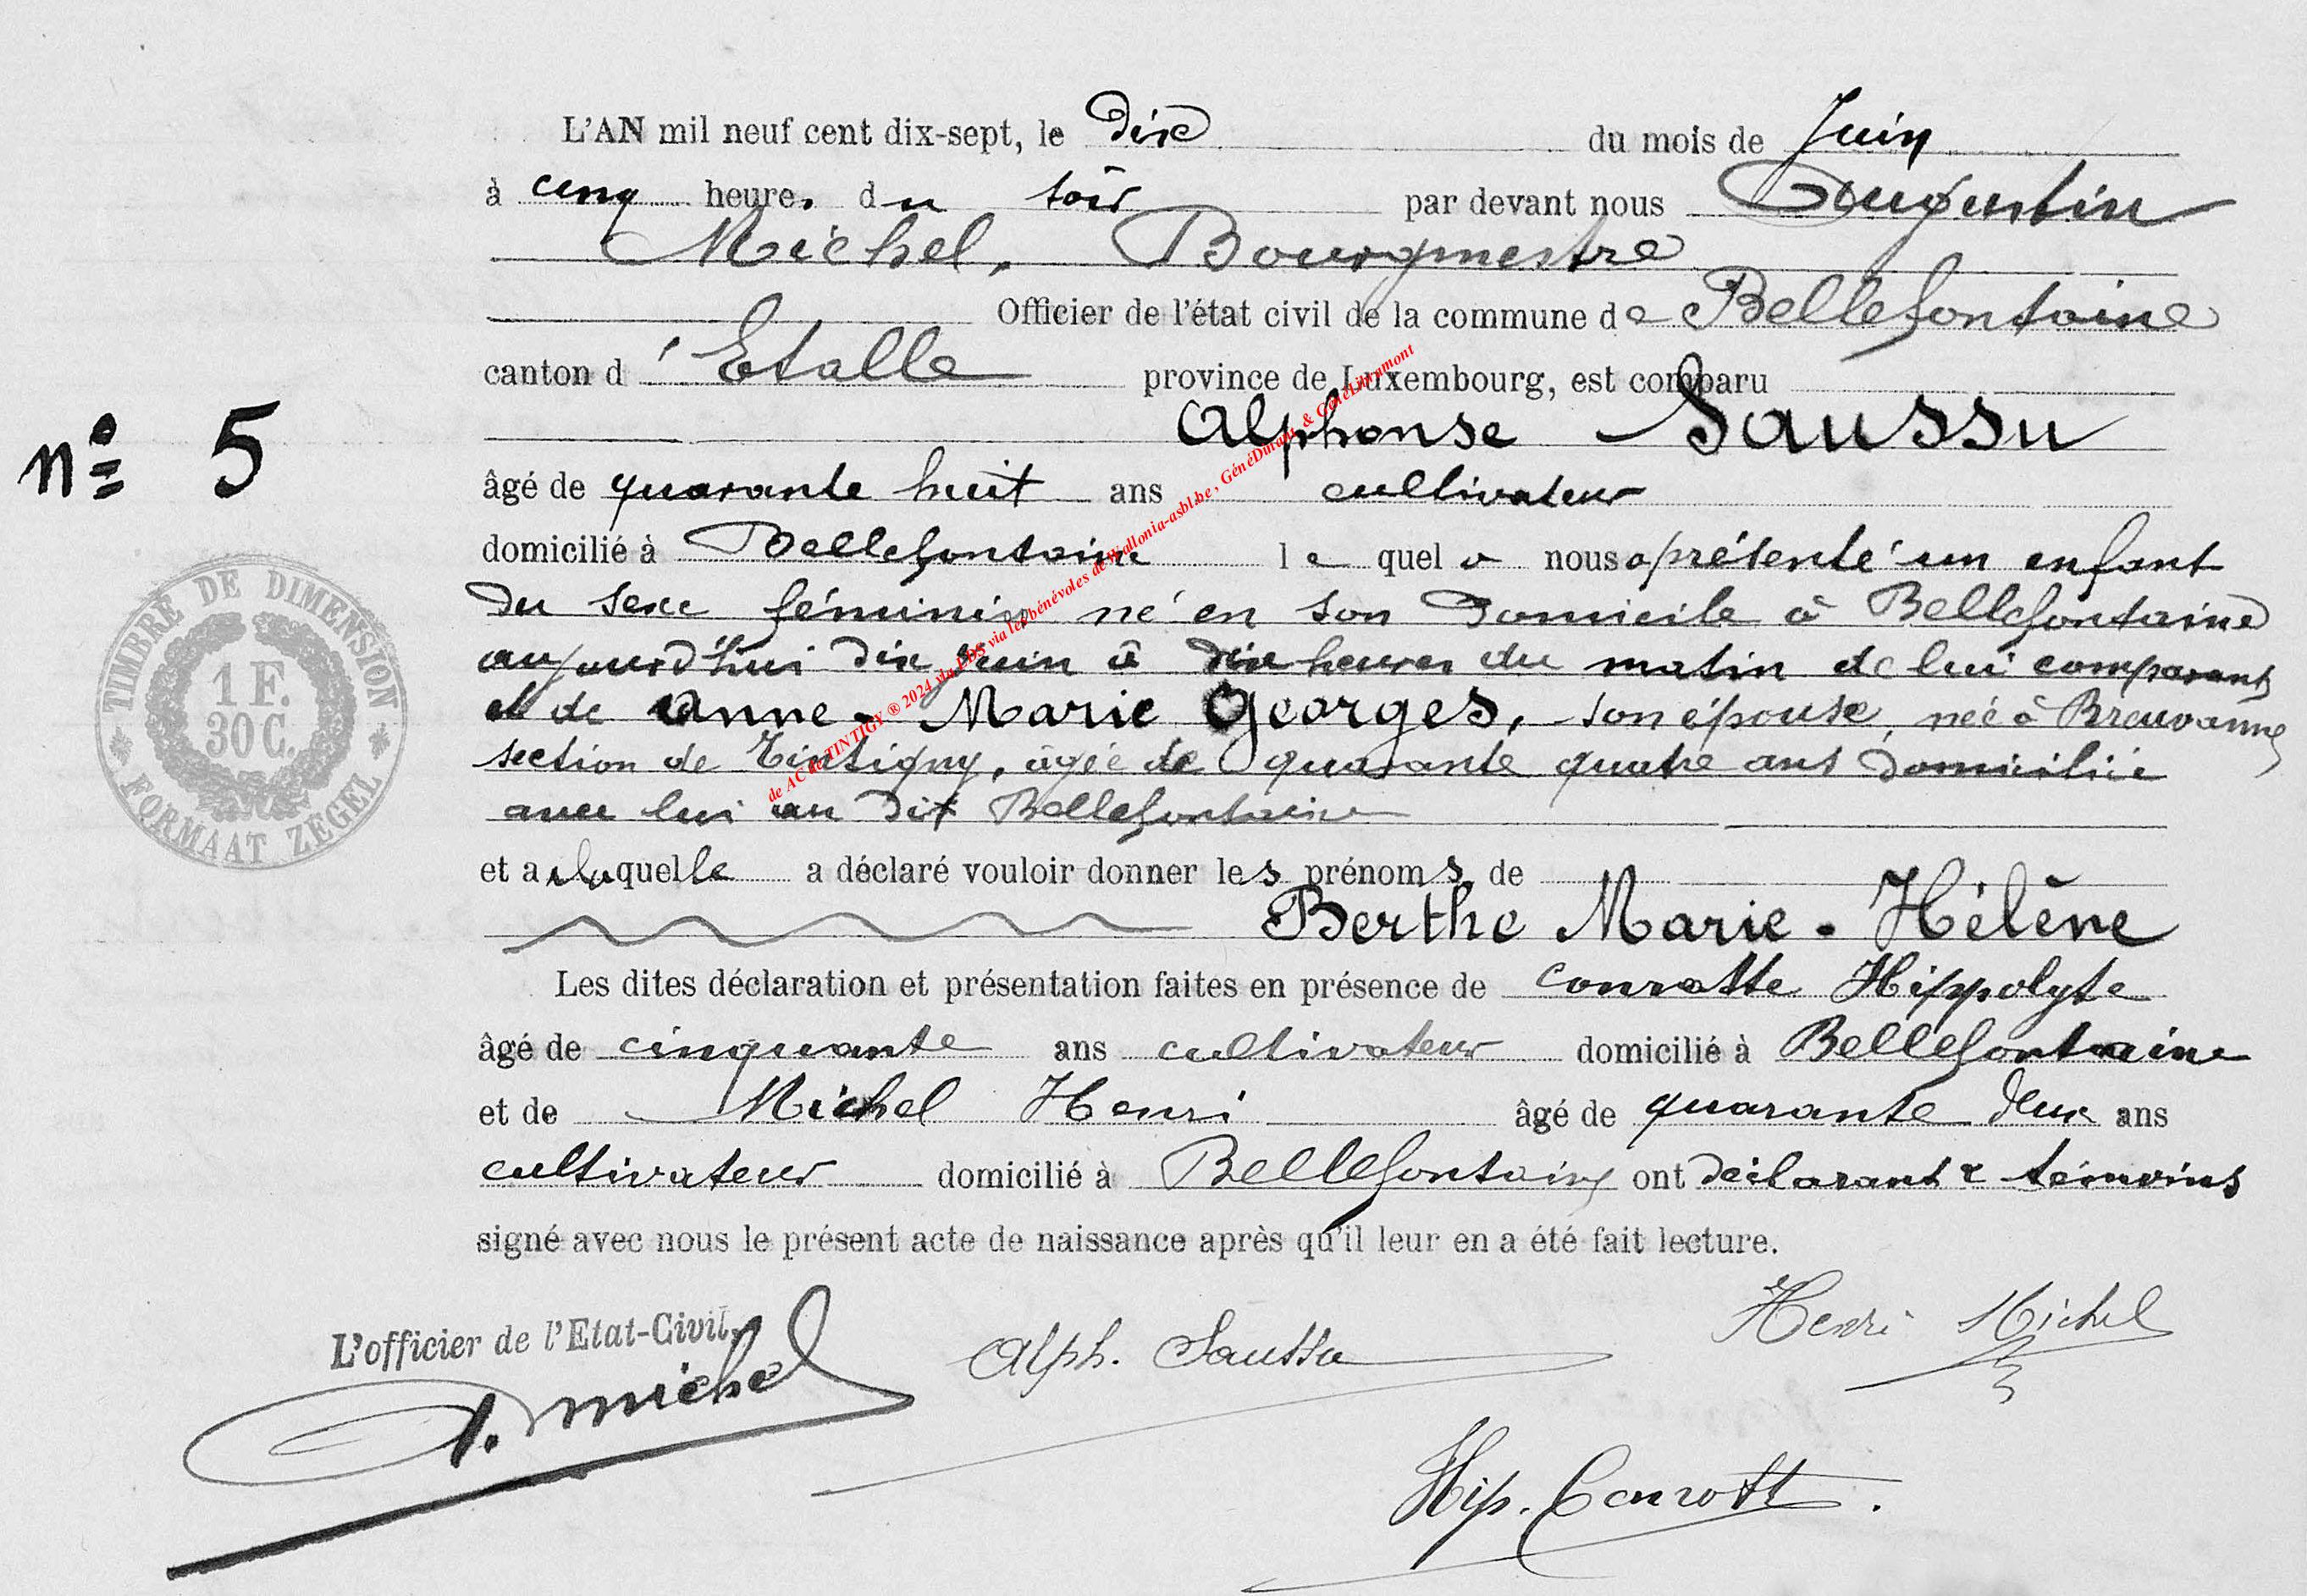 L'AN mil neuf cent dix-sept, le dix du mois de Juin
à cinq heures du soir par devant nous Augustin
Michel, Bourgmestre
Officier de l'état civil de la commune de Bellefontaine
canton d'Etalle province de Luxembourg, est comparu
Alphonse Saussu
n° 5
âgé de quarante huit ans cultivateur
domicilié à Bellefontaine lequel nous a présenté un enfant
du sexe féminin né en son domicile à Bellefontaine
aujourd'hui dix Juin à dix heures du matin de lui comparant
et de Anne-Marie Georges, son épouse, née à Breuvanne
section de Tintigny, âgée de quarante quatre ans domiciliée
avec lui au dit Bellefontaine
et a laquelle a déclaré vouloir donner les prénoms de
Berthe Marie-Hélène
Les dites déclaration et présentation faites en présence de Conrotte Hippolyte
âgé de cinquante ans cultivateur domicilié à Bellefontaine
et de Michel Henri âgé de quarante deux ans
cultivateur domicilié à Bellefontaine ont déclarant & témoins
signé avec nous le présent acte de naissance après qu'il leur en a été fait lecture.
L'officier de l'Etat-Civil,
A. Michel
Alph. Saussu
Henri Michel
Hip. Conrott
TIMBRE DE DIMENSION
1 F.
30 C.
FORMAAT ZEGEL
de AC de TINTIGY ® 2024 via FDS via les bénévoles de Wallonia-asbl.be, GénéDinant & GénéLibramont